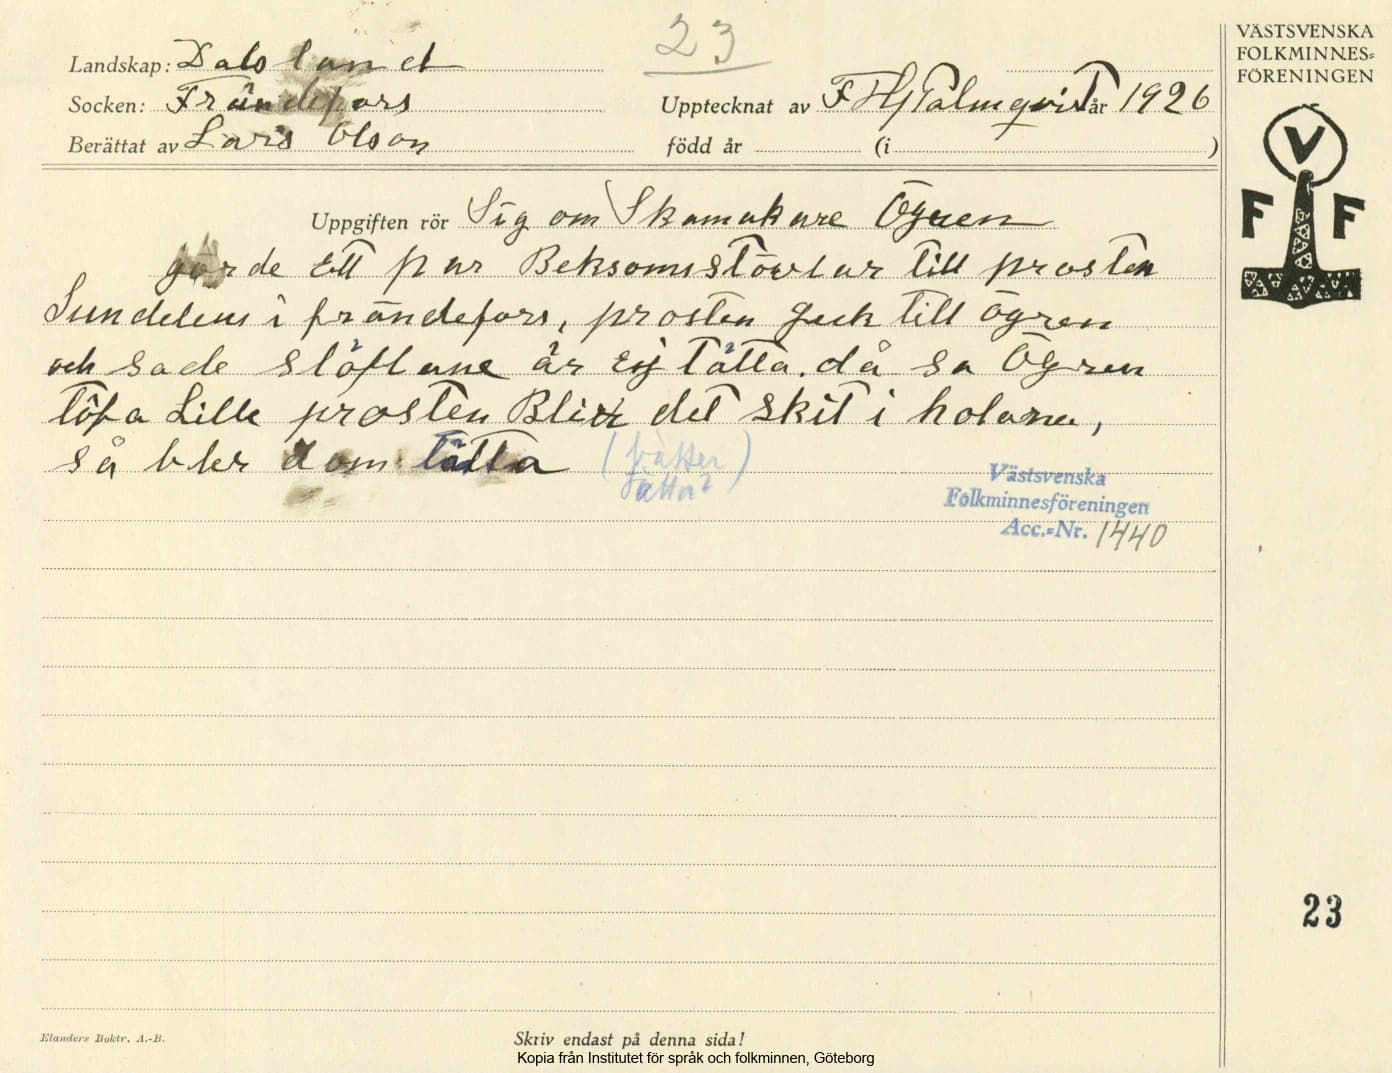 23
VÄSTSVENSKA
FOLKMINNES=
FÖRENINGEN
Landskap: Dalslandet
Socken: Frändefors
Upptecknat av F Hj Palmqvist år 1926
Berättat av Lars Olson
född år (i )
V
F F
Uppgiften rör Sig om Skomakare Ögren
gorde Ett par Beksomsstövlar till prosten
Sundelius i frändefors, prosten Geck till ögren
och sade stöflane är Eij tätta. då sa Ögren
töfa Lille prosten Blir det skit i holana,
så bler dom tätta
Västsvenska
Folkminnesföreningen
Acc.=Nr. 1440
23
Elanders Boktr. A.-B.
Skriv endast på denna sida!
Kopia från Institutet för språk och folkminnen, Göteborg